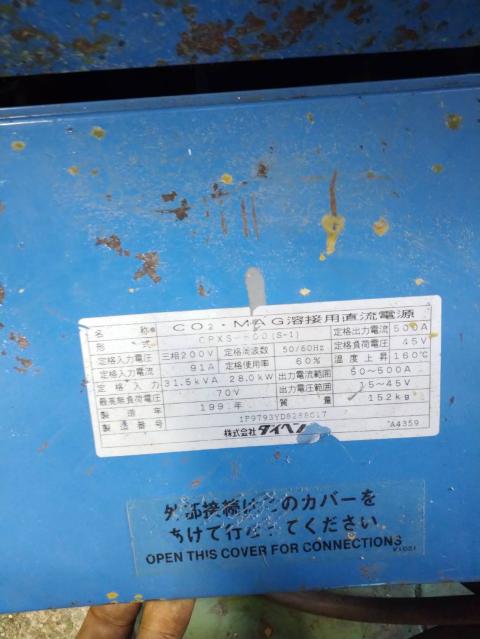 名 称 CO₂・MAG溶接用直流電源
形 式 CPXS- (S-1) 定格出力電流 500A
定格入力電圧 三相200V 定格周波数 50/60Hz 定格負荷電圧 45V
定格入力電流 91A 定格使用率 60% 温度上昇 160℃
定格入力 31.5kVA 28.0kW 出力電流範囲 60~500A
最高無負荷電圧 70V 出力電圧範囲 15~45V
製造年 199 年 質量 152kg
製造番号
株式会社 ダイヘン A4359
外部接続はこのカバーを
あけて行なってください
OPEN THIS COVER FOR CONNECTIONS